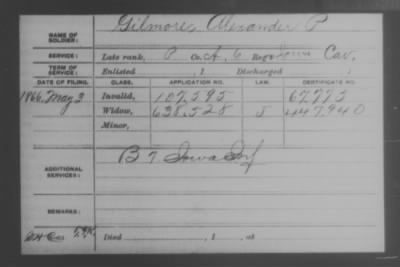 NAME OF SOLDIER: Gilmore, Alexander P
SERVICE: Late rank, P Co. A, 6 Reg't Iowa Cav.
TERM OF SERVICE: Enlisted , 1 Discharged , 1
DATE OF FILING. CLASS. APPLICATION NO. LAW. CERTIFICATE NO.
1866, May 3 Invalid, 107,595 67,773
Widow, 638,528 447,940
Minor,
ADDITIONAL SERVICES: B 7 Iowa Inf
REMARKS:
Died , 1 , at